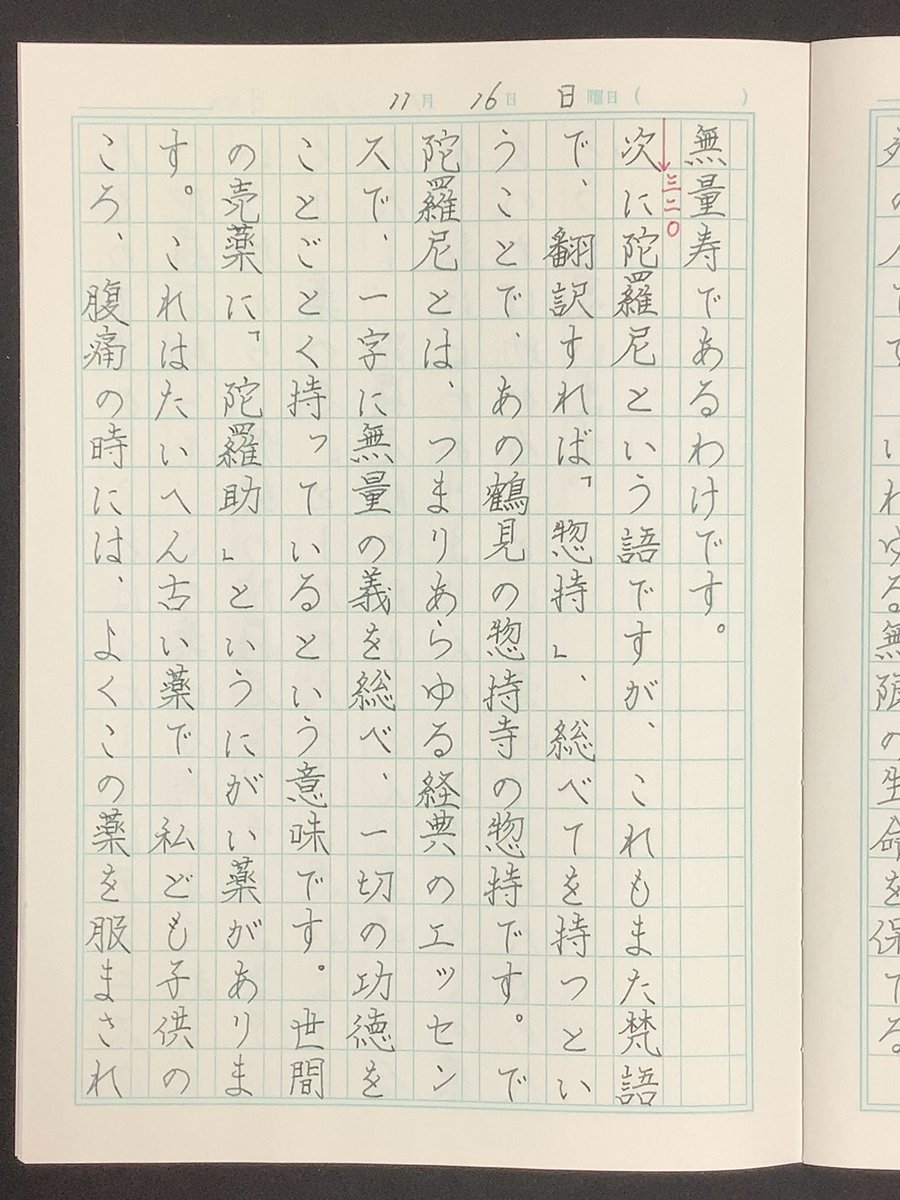 11月 16日 日曜日( )
無量寿であるわけです。
三二〇
次に陀羅尼という語ですが、これもまた梵語
で、翻訳すれば「惣持」、総べてを持つとい
うことで、あの鶴見の惣持寺の惣持です。で
陀羅尼とは、つまりあらゆる経典のエッセン
スで、一字に無量の義を総べ、一切の功徳を
ことごとく持っているという意味です。世間
の売薬に、「陀羅助」というにがい薬がありま
す。これはたいへん古い薬で、私ども子供の
ころ、腹痛の時には、よくこの薬を服まされ